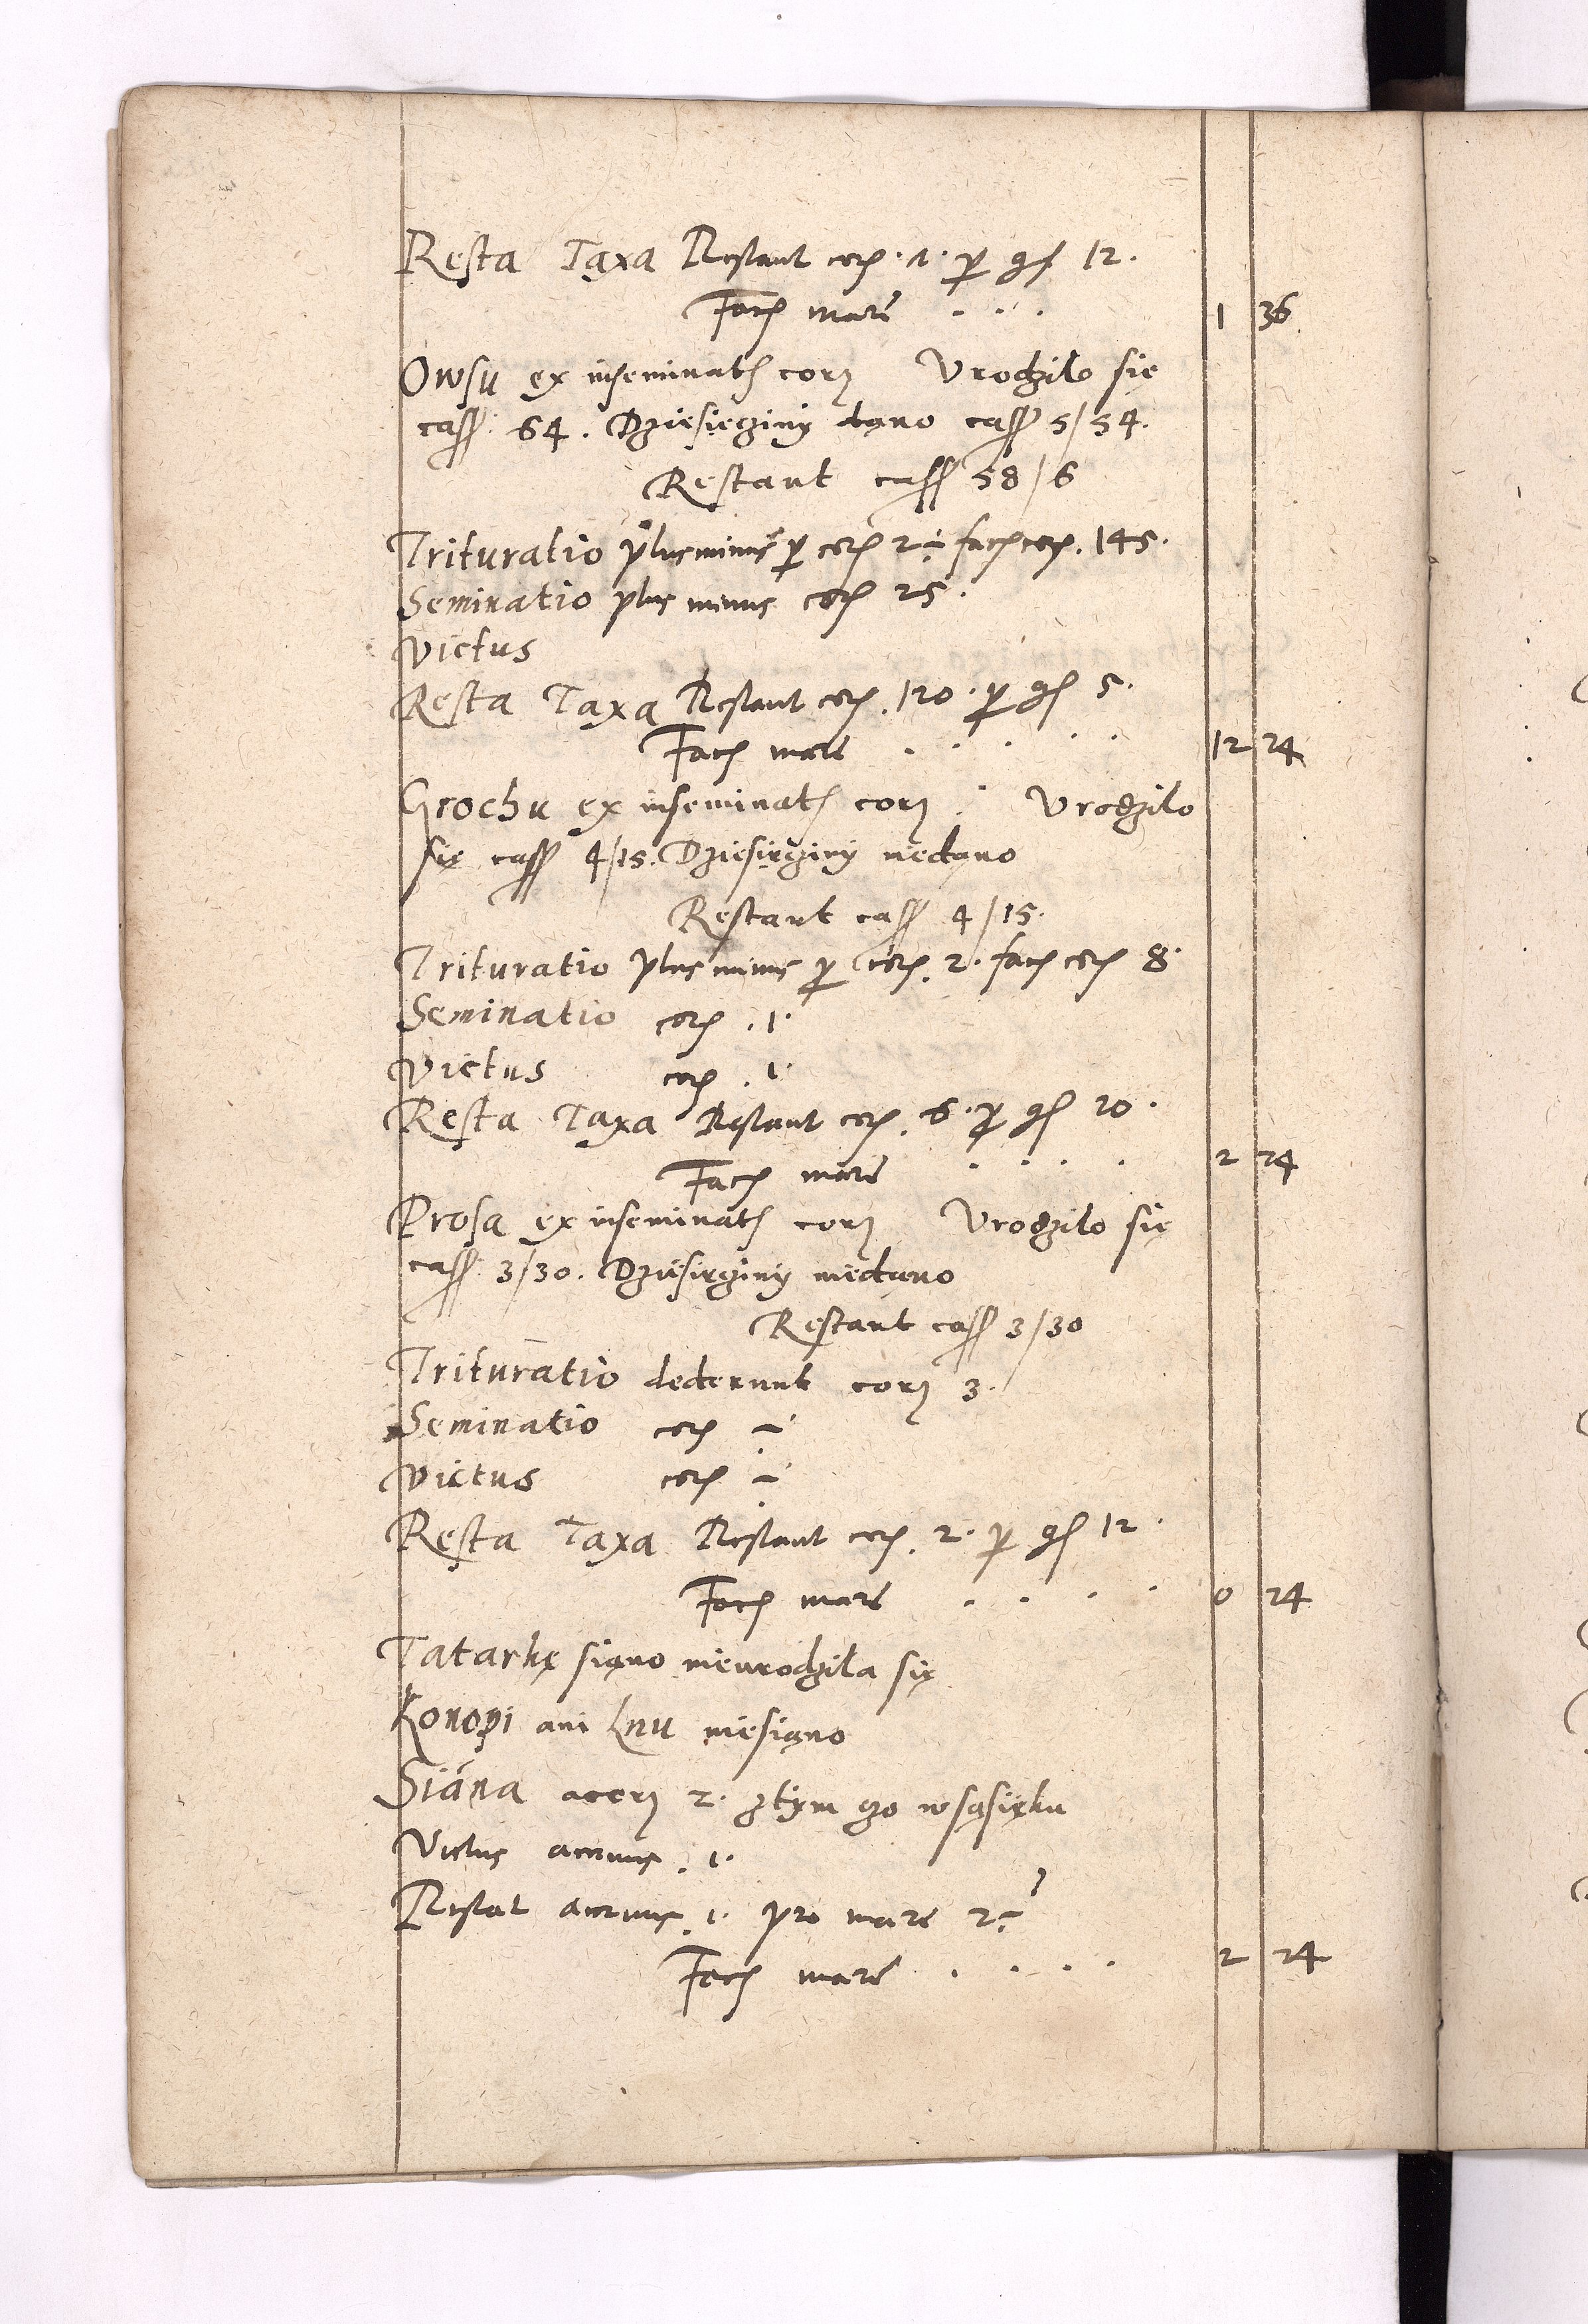 Resta Taxa Restant cor. 7. p gr 12.
Facit marc . . . 1 36
Owsu ex inseminat cori Vrodzilo sie
cass 64. Dziesięciny dano cass 5/54.
Restant cass 58/6
Trituratio plus minus p cor 2÷ facit cor. 145.
Seminatio plus minus cor 25.
Victus
Resta Taxa Restant cor. 120. p gr 5.
Facit marc . . . . . 12 24
Grochu ex inseminat cori . Vrodzilo
się cass 4/15. Dziesięciny niedano
Restant cass 4/15.
Trituratio plus minus p cor. 2. facit cor 8.
Seminatio cor . 1.
Victus cor . 1.
Resta Taxa Restant cor. 6. p gr 20.
Facit marc . . . . 2 24
Prosa ex inseminat cori Vrodzilo się
cass 3/30. Dziesięciny niedano
Restant cass 3/30
Trituratio dederunt cori 3.
Seminatio cor ÷
Victus cor ÷
Resta Taxa Restant cor. 2. p gr 12.
Facit marc . . . . 0 24
Tatarkę siano nieurodzila się
Konopi ani Lnu niesiano
Siána acerj 2. ztym czo wsąsięku
Victus acervus . 1.
Restat acervus . 1. pro marc 2÷
Facit marc . . . . 2 24